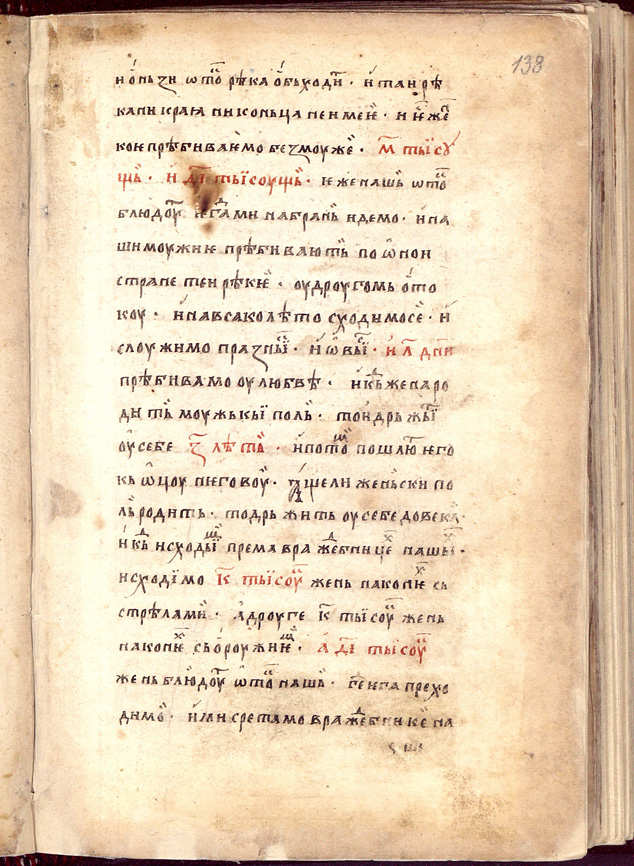 138
и ѡ́ньзи ѡто̑ рѣка ѡбьходи̑ · и́ таи рѣ
ка ни краꙗ ни коньца не имеѥ̀ · и и́же
кою прѣбиваѥмо без моуже̏ · м҃ тыїсу
щь̏ · и́ д҃і тыїсоущь̏ · и же нашь̏ ѡто̑
блюдоу̑ и́ гда̑ ми на брань̏ идемо · и́ на
ши моужиѥ прѣбивають̏ по ѡнои
стране теи рѣкиѥ̀ · оу дроугомь ѡто
коу · и́ на всако лѣто сходимо се̏ · и́
слоужимо празны̑ї · и́ ѡ́вы̑ї · и́ л҃ дни̏
прѣбивамо оу любвѣ̏ · и́ кь̏ѥ же наро
дить̏ моужькы поль̏ · то и дрьжы̑ї
оу̑ себе з҃ лѣть̏ · и́ пото̑м пошлю̑ ѥго
кь ѡ́цоу нѥговоу̏ · а́ще ли женьски по
ль родить · то дрьжить оу себе до века̏
и́ кь̑д исходы̑їм према вражѣбнице̑ нашы̑х ·
исходїмо к҃ тыїсоу̑ жень на кониѥ̑х сь
стрѣлами̏ · а́ дроуге к҃ тыїсоу̑ жень
на кониѥ̑х сь ѡ́роужиѥ̑м · а́ д҃і тыїсоу̑
жень блюдоу̑ ѡто̑ нашь̏ · и҆ѥгда прехо
димо̏ · и́ ми сретамо вражѣбникѐ на